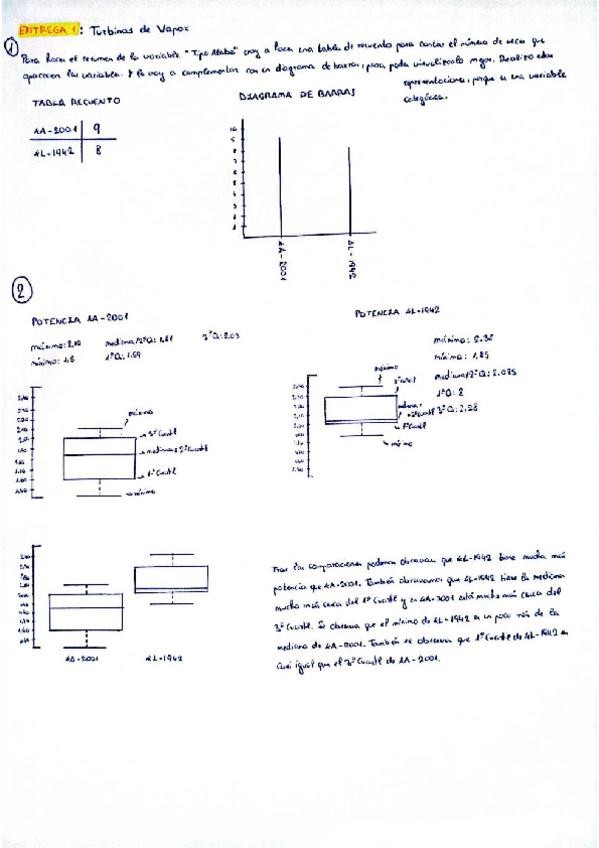 ENTREGA 1: Turbinas de Vapor
1
Para hacer el resumen de la variable "Tipo Alabe" voy a hacer una tabla de recuento para contar el número de veces que
aparecen las variable. Y lo voy a complementar con un diagrama de barras, para poder visualizarlo mejor. Realizo estas
representaciones, porque es una variable
categórica.
TABLA RECUENTO
DIAGRAMA DE BARRAS
AA-2001 9
AL-1942 8
AA-2001
AL-1942
2
POTENCIA AA-2001
POTENCIA AL-1942
mediana/2ºQ: 1,81 3ºQ: 2,03
mínimo: 1,5 1ºQ: 1,59
máximo: 2,32
mínimo: 1,85
mediana/2ºQ: 2,075
1ºQ: 2
3ºQ: 2,28
máximo
3º Cuartil
mediana = 2º Cuartil
1º Cuartil
mínimo
máximo
3º Cuartil
mediana =
2º Cuartil
1º Cuartil
mínimo
AA-2001 AL-1942
Tras las comparaciones podemos observar que AL-1942 tiene mucha más
potencia que AA-2001. También observamos que AL-1942 tiene la mediana
mucho más cerca del 1º Cuartil y en AA-2001 está mucho más cerca del
3º Cuartil. Se observa que el mínimo de AL-1942 es un poco más de la
mediana de AA-2001. También se observa que 1º Cuartil de AL-1942 es
casi igual que el 3º Cuartil de AA-2001.